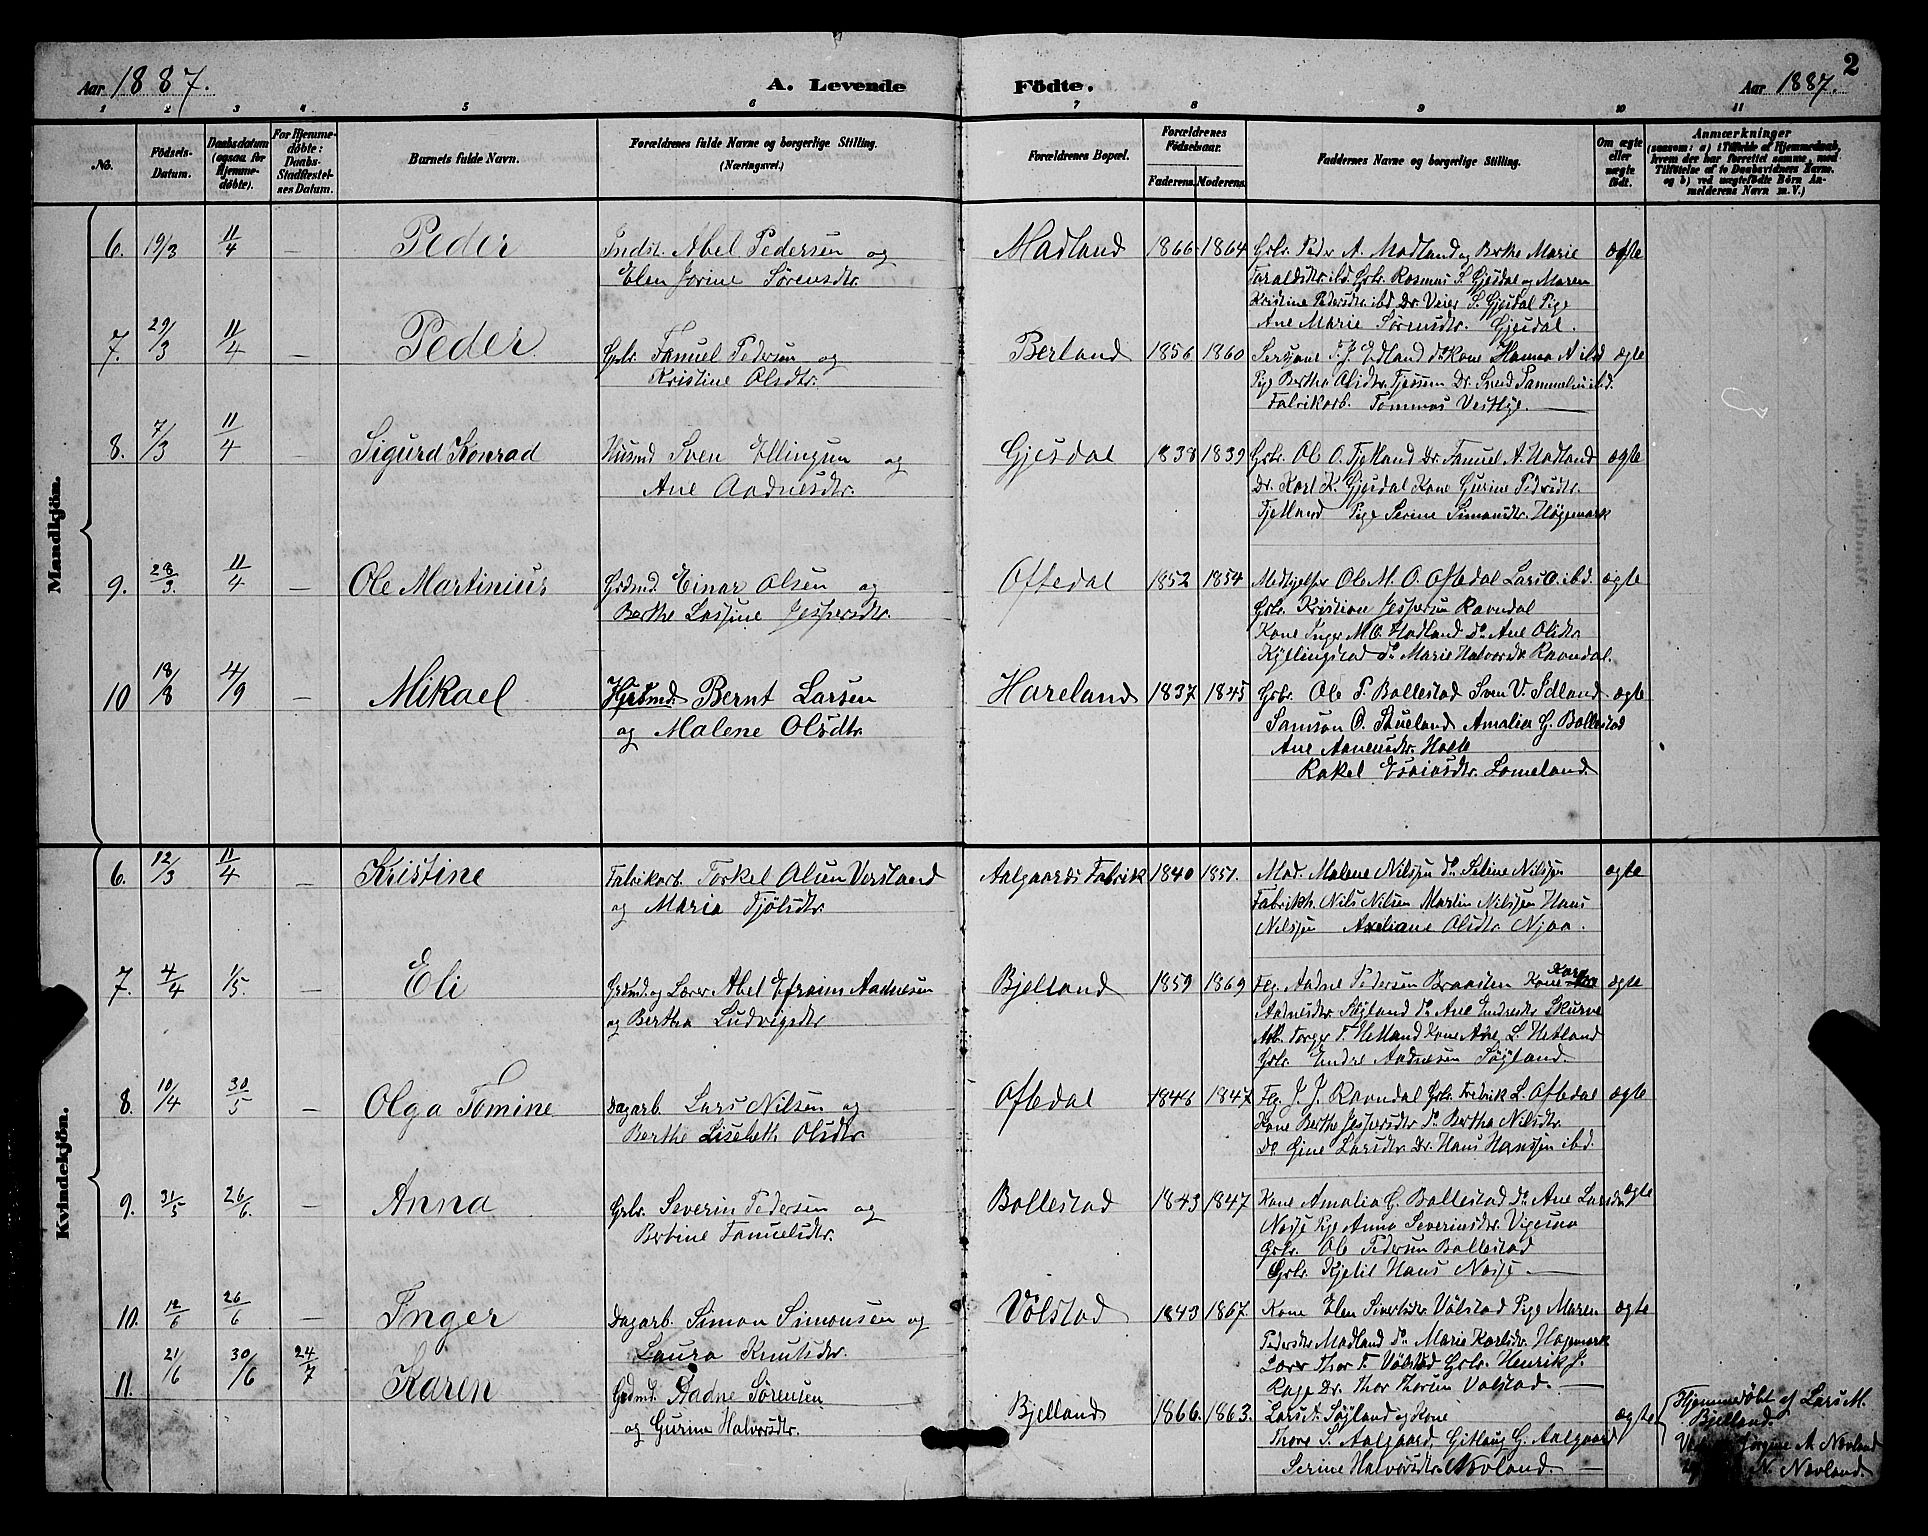 2
Aar 1887.
A. Levende Födte.
Aar 1887.
1 2 3 4 5 6 7 8 9 10 11
No.
Födsels-Datum.
Daabsdatum (ogsaa for Hjemmedöbte).
For Hjemmedöbte: Daabs-Stadfæstelses Datum.
Barnets fulde Navn.
Forældrenes fulde Navne og borgerlige Stilling.
(Næringsvei.)
Forældrenes Bopæl.
Forældrenes Födselsaar.
Faderens. Moderens.
Faddernes Navne og borgerlige Stilling.
Om ægte eller uægte födt.
Anmærkninger
(saasom: a) i Tilfælde af Hjemmedaab, hvem der har forrettet samme, med Tilföielse af to Daabsvidners Navne. og b) ved uægtefödte Börn Anmelderens Navn m. V.)
Mandkjön.
6. 19/3 11/4 — Peder
Indst. Abel Pedersen og
Elen Jorine Sørensdtr.
Madland 1866 1864
Grbr. Peder A. Madland og Berthe Marie
Taraldsdtr. ibd. Grbr. Rasmus S. Gjesdal og Maren
Kristine Pedersdtr. ibd Dr. Veier S. Gjesdal Pige
Ane Marie Sørensdtr. Gjesdal.
ægte
7. 29/3 11/4 — Peder
Grbr. Tanuel Pedersen og
Kristine Olsdtr.
Berland 1856 1860
Sersjant T. J. Edland do Kone Hanna A ibd
Pige Bertha Olsdtr. Dr. Svend ibd.
Fabrikarb. Tommas
ægte
8. 7/3 11/4 Sigurd Konrad
Husmd Sven Ellingsen og
Ane Aadnesdtr.
Gjesdal 1838 1839
Grbr. Ole O. Fjelland Dr. Tanuel A. Madland
Dr. Karl K. Gjesdal Kone Gurine Pedersdtr.
Fjelland Pige Serine Simonsdtr. Høgemark
ægte
9. 28/3. 11/4 — Ole Martinius
Grdmd. Einar Olsen og
Berthe Lassine Jespersdtr.
Oftedal 1852 1854
Medhjelper Ole M. O. Oftedal Lars O. ibd.
Grbr. Kristian Jespersen Ravndal
Kone Inger M. O. Madland do Ane Olsdtr.
Kyllingstad do Marie Halvorsdtr Ravndal.
ægte
10 18/8 4/9 — Mikael
Husmd. Bernt Larsen
og Malene Olsdtr.
Hareland 1837 1845
Grbr. Ole P. Bollestad Sven V. Idland
Samson O. Skueland Amalia G. Bollestad
Ane
Rakel Esaiasdtr. Lomeland.
ægte
Kvindekjön.
6. 12/3 11/4 — Kristine
Fabrikarb. Torkel Olsen Versland
og Maria
Aalgaards Fabrik 1840 1851.
Mad. Malene Nilssen do Seline Nilssen
Fabrikh. Nils Nilsen Martin Nilssen Hans
Nilssen Axeliane Olsdtr. Njaa.
ægte
7. 4/4 1/5. — Eli
Grdmd. og Lærer Abel Efraim Aadnesen
og Bertha Ludvigsdtr
Bjelland 1859 1869
Flg. Aadne Pedersen Braasten Kone
Aadnesdtr Søyland do Ane Endresdtr Skurve
Arb. Torger T. Hetland Kone Ane L. Hetland
Grbr. Endre Aadnesen Søyland
ægte
8. 10/4 30/5 — Olga Tomine
Dagarb. Lars Nilsen og
Berthe Lisebeth Olsdtr
Oftedal 1846 1847
Flg. J. J. Ravndal Grbr. Fredrik L. Oftedal
Kone Berthe Jespersdtr do Bertha Nilsdtr.
do. Gine Larsdtr. Dr. Hans Hanssen ibd.
ægte
9. 31/5 26/6. — Anna
Grbr. Severin Pedersen og
Bertine Tanuelsdtr.
Bollestad 1843 1847
Kone Amalia G. Bollestad do Ane Larsdtr
Pige Anna Severinsdtr.
Grbr. Ole Pedersen Bollestad
Grbr. Kjetil Hans
ægte
10. 12/6 26/6 — Inger
Dagarb. Simon Simonsen og
Laura Knutsdtr
Vølstad 1843 1867.
Kone Elen Sivertsdtr Vølstad Pige Maren
Pedersdtr Madland do Marie Karlsdtr Høgemark
Lærer Thor T. Vølstad Grbr. Henrik J.
Rage Dr. Thor Thorsen Vølstad.
ægte
11. 21/6 30/6 24/7 Karen
Grdmd. Aadne Sørensen
og Gurina Halvorsdtr.
Bjelland 1866. 1863.
Lars A. Søyland og Kone
Thore S. Aalgaard, Gitlaug G. Aalgaard
Serine Halvorsdtr. Nævland.
ægte
Hjemmedøbt af Lars M.
Bjelland.
Jorgine A. Nævland
N. Nævland.